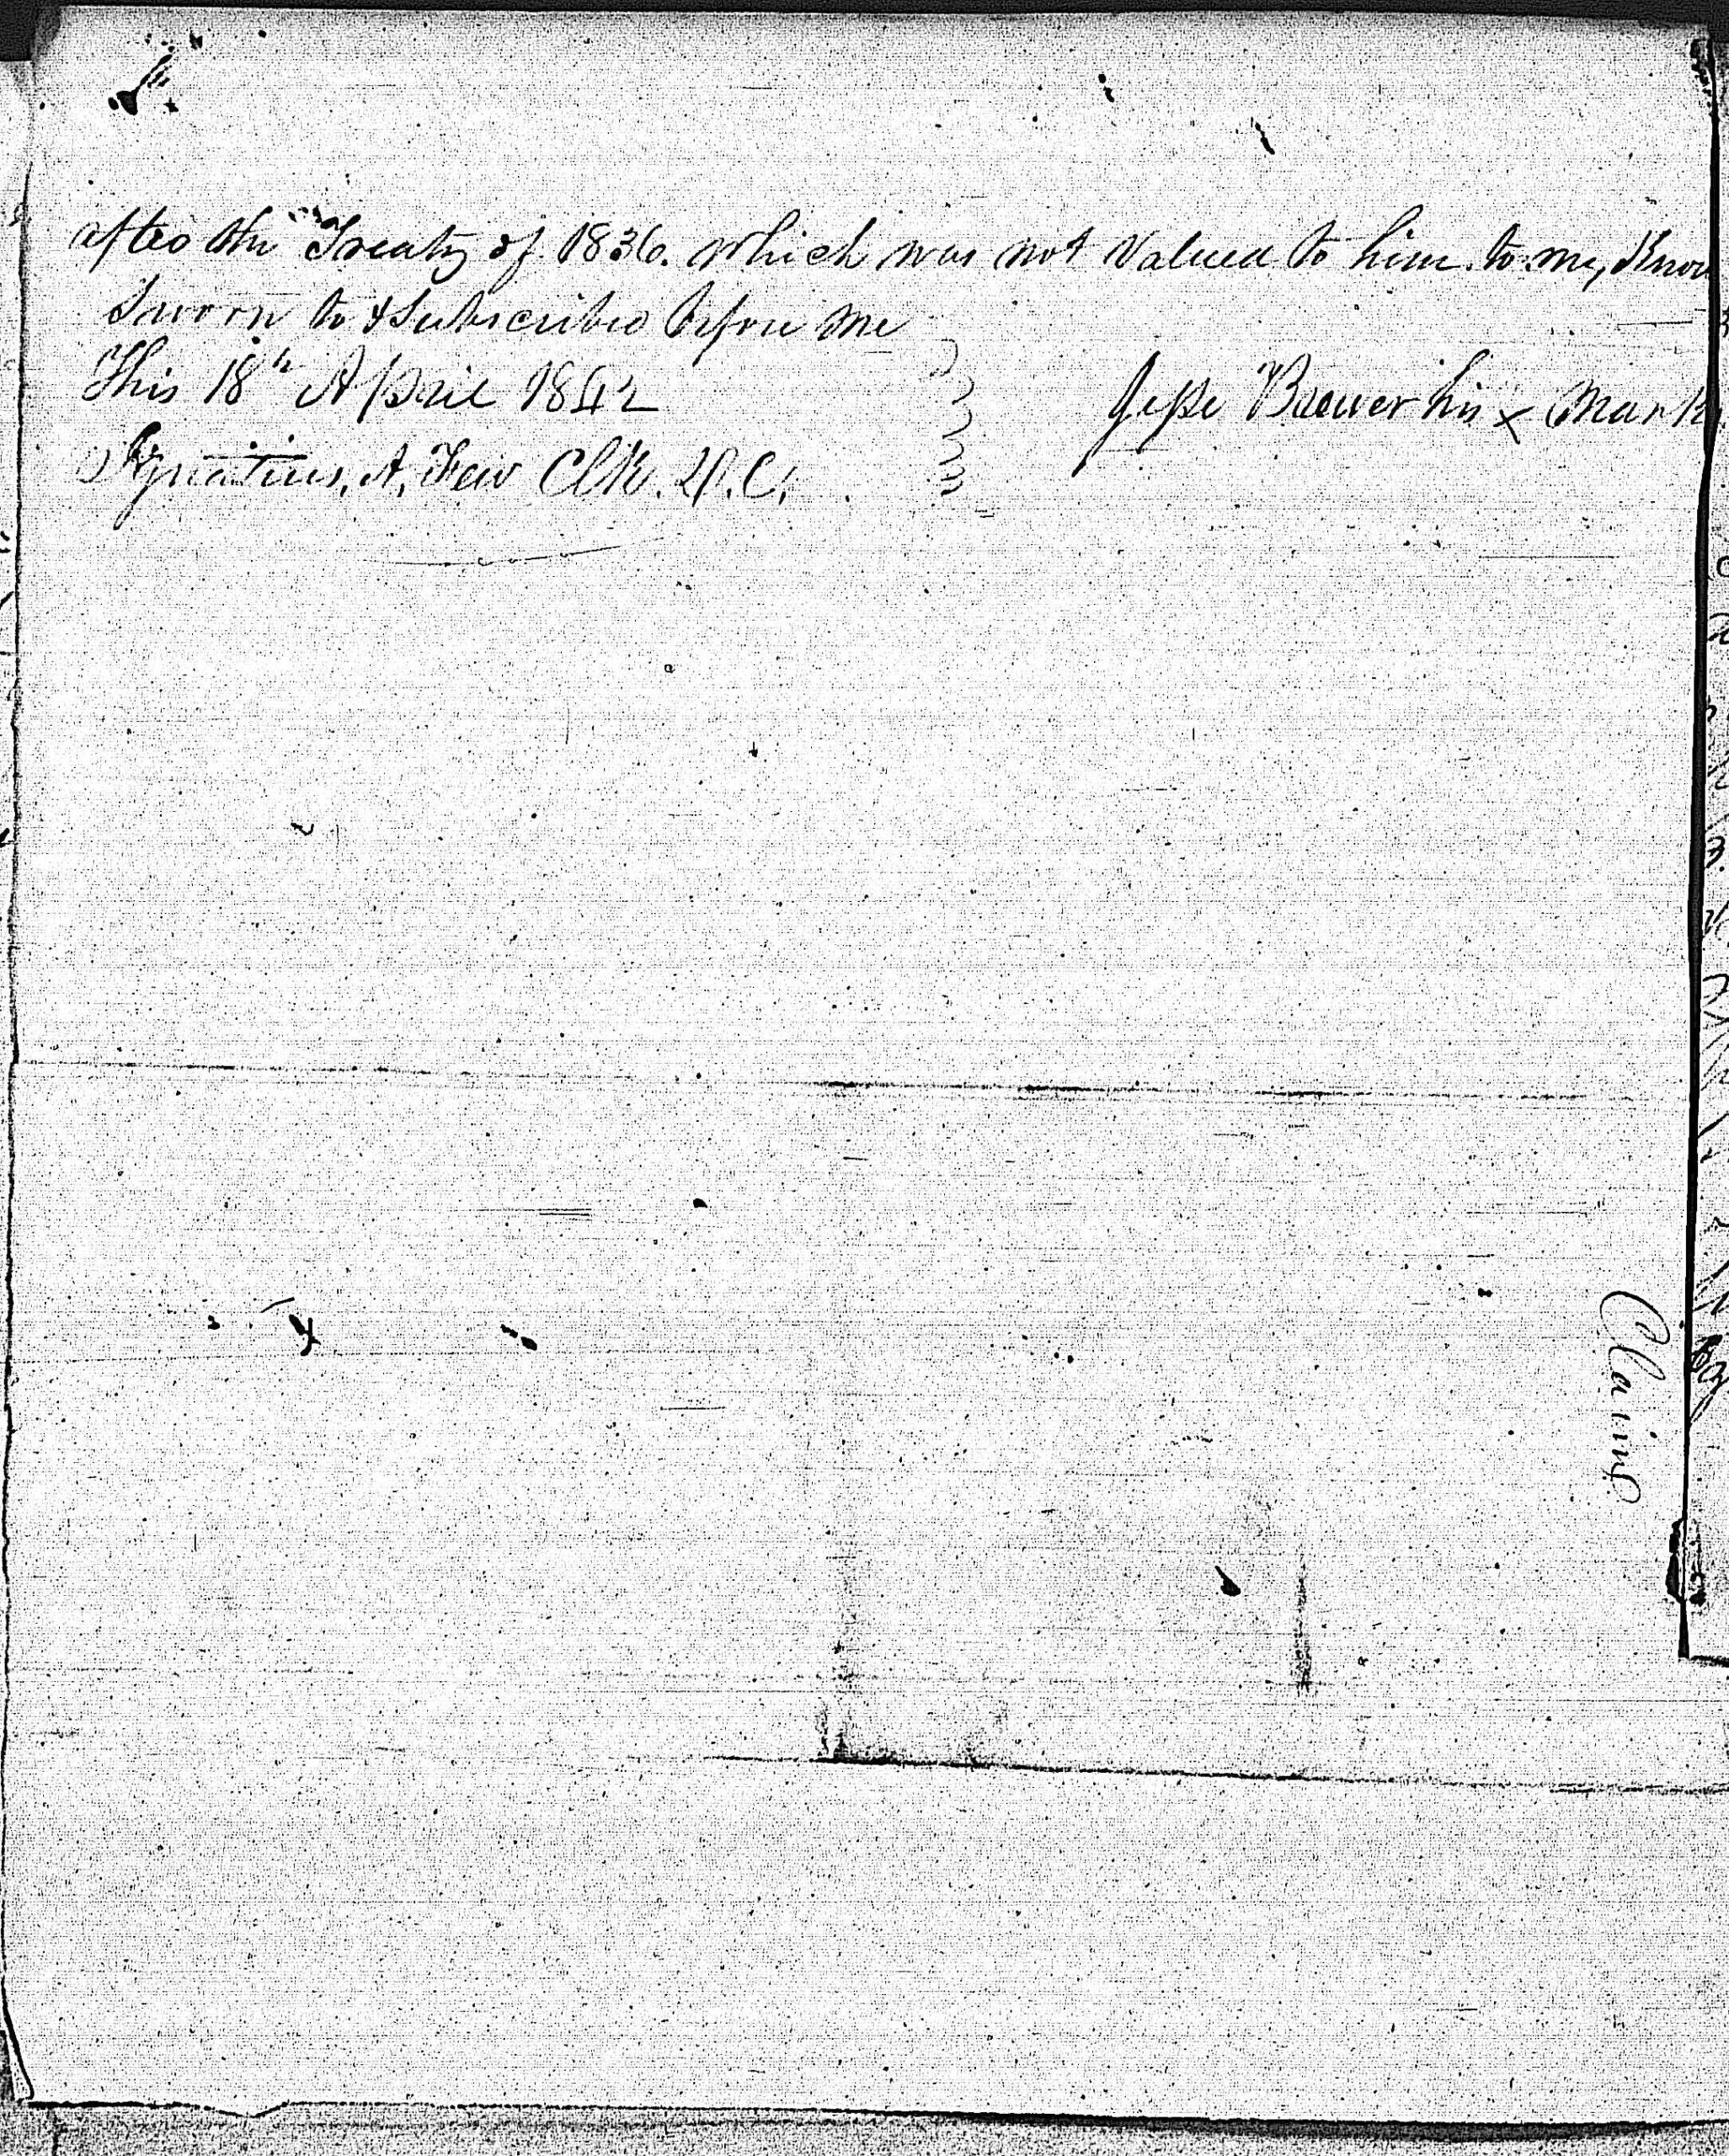 after the Treaty of 1836. which was not Valued to him to my Know
Sworn to & Subscribed before me
This 18th April 1842
Jesse Brewer his x mark
Ignatius, A, Few Clk. D.C.
Claims